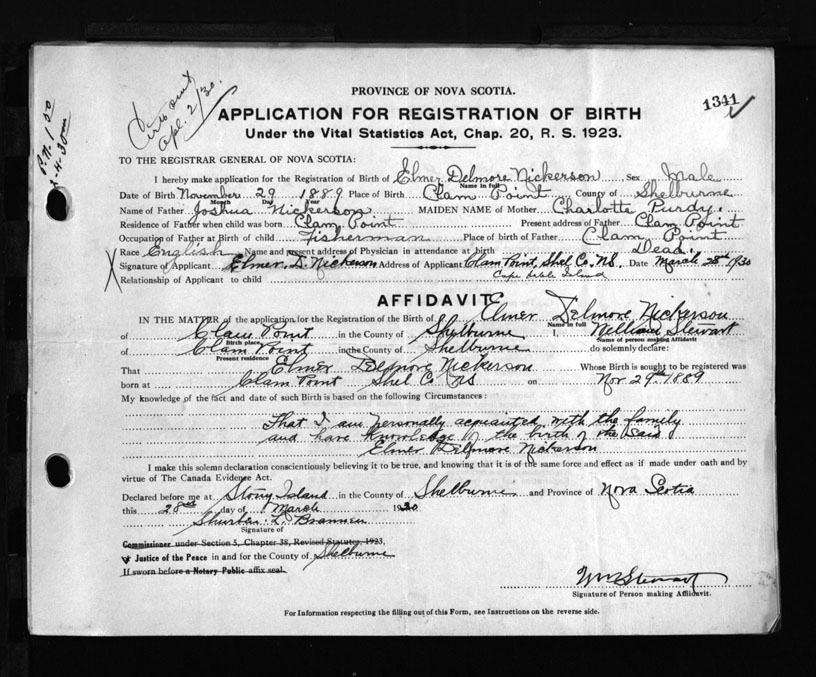 PROVINCE OF NOVA SCOTIA.
1341
Apl. 2/30.
P.N. 1 50
APPLICATION FOR REGISTRATION OF BIRTH
Under the Vital Statistics Act, Chap. 20, R. S. 1923.
TO THE REGISTRAR GENERAL OF NOVA SCOTIA:
I hereby make application for the Registration of Birth of Elmer Delmore Nickerson Sex Male
Name in full
Date of Birth November 29 1889 Place of Birth Clam Point County of Shelburne
Month Day Year
Name of Father Joshua Nickerson MAIDEN NAME of Mother Charlotte Purdy.
Residence of Father when child was born Clam Point Present address of Father Clam Point
Occupation of Father at Birth of child Fisherman Place of birth of Father Clam Point
Race English Name and present address of Physician in attendance at birth Dead.
Signature of Applicant Elmer D. Nickerson Address of Applicant Clam Point, Shel Co, N.S. Date March 28th 1930
Relationship of Applicant to child Cape Sable Island
AFFIDAVIT
IN THE MATTER of the application for the Registration of the Birth of Elmer Delmore Nickerson
Name in full
of Clam Point in the County of Shelburne I, William Stewart
Birth place Name of person making Affidavit
of Clam Point in the County of Shelburne do solemnly declare:
Present residence
That Elmer Delmore Nickerson Whose Birth is sought to be registered was
born at Clam Point Shel Co NS on Nov 29th 1889
My knowledge of the fact and date of such Birth is based on the following Circumstances:
That I am personally acquainted with the family
and have knowledge of the birth of the said
Elmer Delmore Nickerson
I make this solemn declaration conscientiously believing it to be true, and knowing that it is of the same force and effect as if made under oath and by
virtue of The Canada Evidence Act.
Declared before me at Stony Island in the County of Shelburne and Province of Nova Scotia
this 28th day of March 1930
L. Brannen
Signature of
Commissioner under Section 5, Chapter 38, Revised Statutes, 1923,
Justice of the Peace in and for the County of Shelburne
If sworn before a Notary Public affix seal.
Wm Stewart
Signature of Person making Affidavit.
For Information respecting the filling out of this Form, see Instructions on the reverse side.